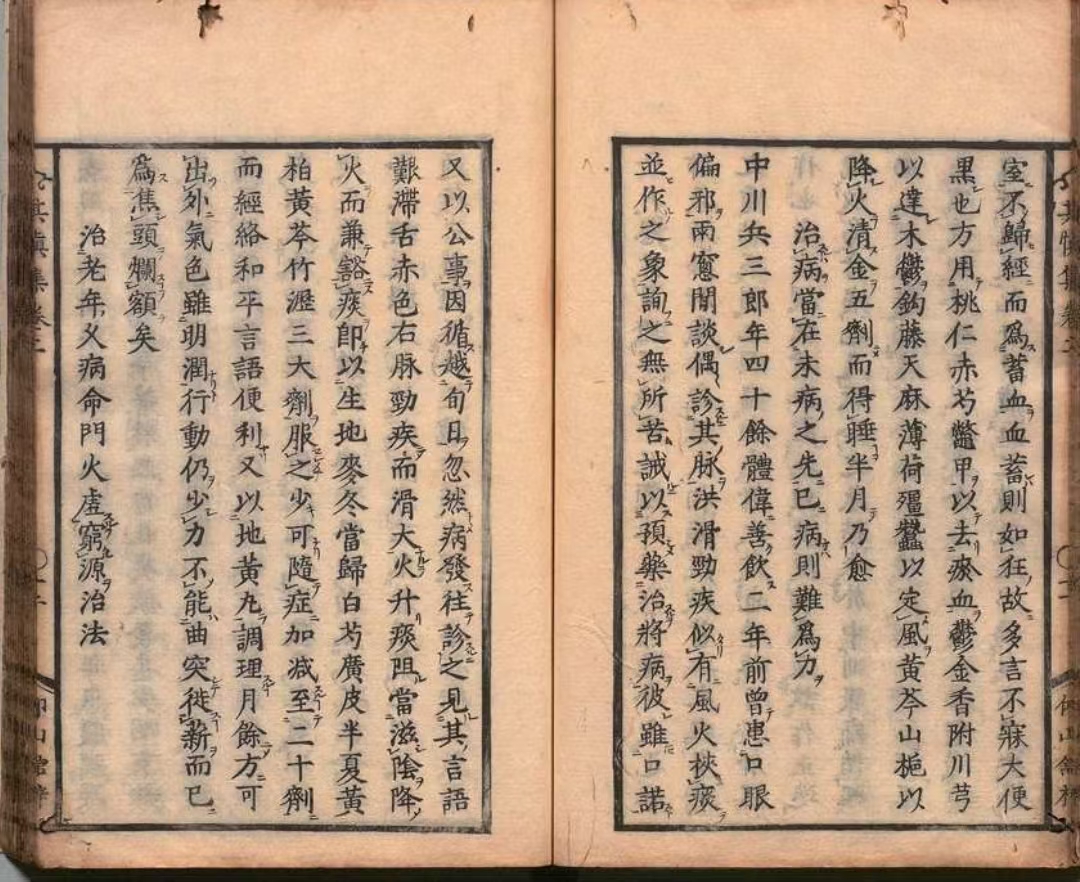 室不歸經而爲蓄血血蓄則如狂故多言不寐大便
黒也方用桃仁赤芍鼈甲以去瘀血鬱金香附川芎
以達木鬱鈎藤天麻薄荷殭蠶以定風黄芩山梔以
降火清金五劑而得睡半月乃愈
治病當在未病之先已病則難爲力
中川兵三郎年四十餘體偉善飲二年前曾患口眼
偏邪雨窓閒談偶診其脉洪滑勁疾似有風火挾痰
並作之象詢之無所苦誡以預藥治將病彼雖口諾
又以公事因循越旬日忽然病發往診之見其言語
艱滯舌赤色右脉勁疾而滑大火升痰阻當滋陰降
火而兼豁痰卽以生地麥冬當歸白芍廣皮半夏黄
柏黄芩竹瀝三大劑服之少可隨症加减至二十劑
而經絡和平言語便利又以地黄丸調理月餘方可
出外氣色雖明潤行動仍少力不能曲突徙薪而已
爲焦頭爛額矣
治老年久病命門火虚窮源治法